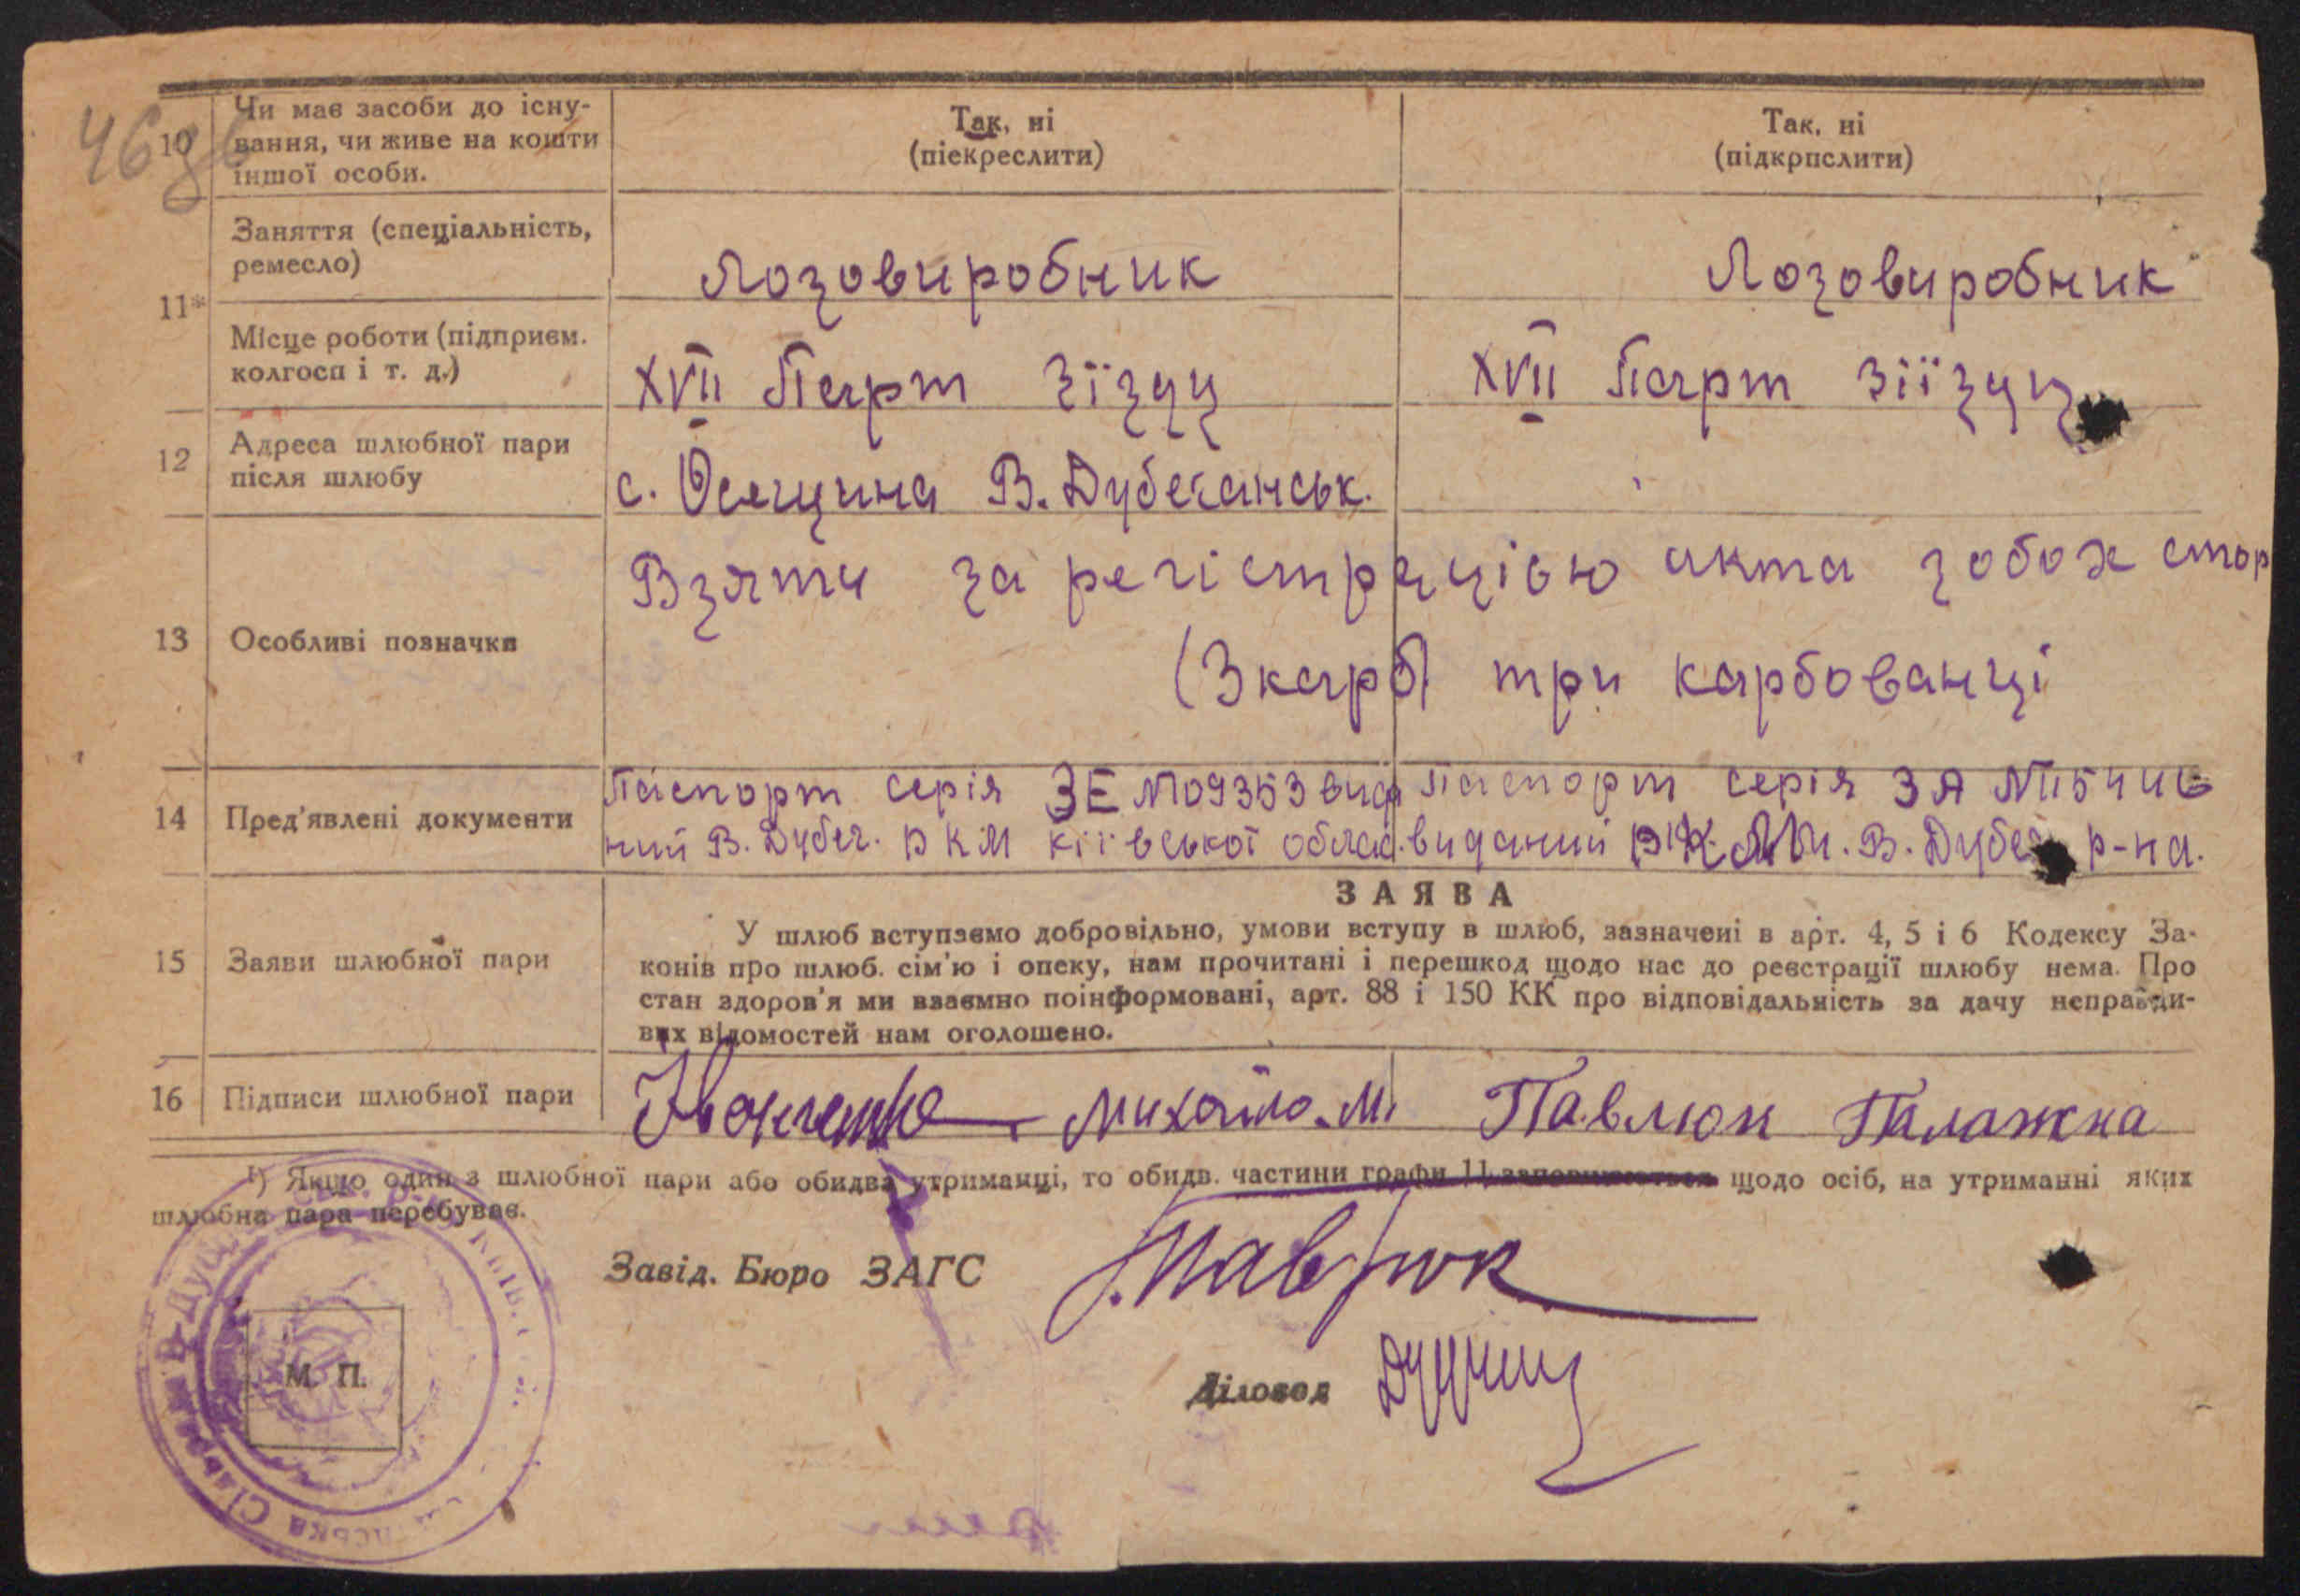 46зв
10
Чи має засоби до існу-
вання, чи живе на кошти
іншої особи.
Так, ні
(піекреслити)
Так, ні
(підкрпслити)
11*
Заняття (спеціальність,
ремесло)
Лозовиробник
Лозовиробник
Місце роботи (підприєм.
колгосп і т. д.)
XVII Парт зїзду
XVII Парт зіїзду
12
Адреса шлюбної пари
після шлюбу
с. Осещина В. Дубечанськ.
13
Особливі позначки
Взяти за регістрацією акта з обох стор
(3 карб) три карбованці
14
Пред'явлені документи
Паспорт серія ЗЕ №09353 вида
ний В. Дубеч. Р К М Кіївської облас.
Паспорт серія ЗА
виданий В. Дубеч р-на.
15
Заяви шлюбної пари
ЗАЯВА
У шлюб вступаємо добровільно, умови вступу в шлюб, зазначені в арт. 4, 5 і 6 Кодексу За-
конів про шлюб. сім'ю і опеку, нам прочитані і перешкод щодо нас до реєстрації шлюбу нема. Про
стан здоров'я ми взаємно поінформовані, арт. 88 і 150 КК про відповідальність за дачу неправди-
вих відомостей нам оголошено.
16
Підписи шлюбної пари
Михайло М.
Павлюк Палажка
¹) Якщо один з шлюбної пари або обидва утриманці, то обидв. частини графи 11 заповнюються щодо осіб, на утриманні яких
шлюбна пара перебуває.
Завід. Бюро ЗАГС
М. П.
Діловод